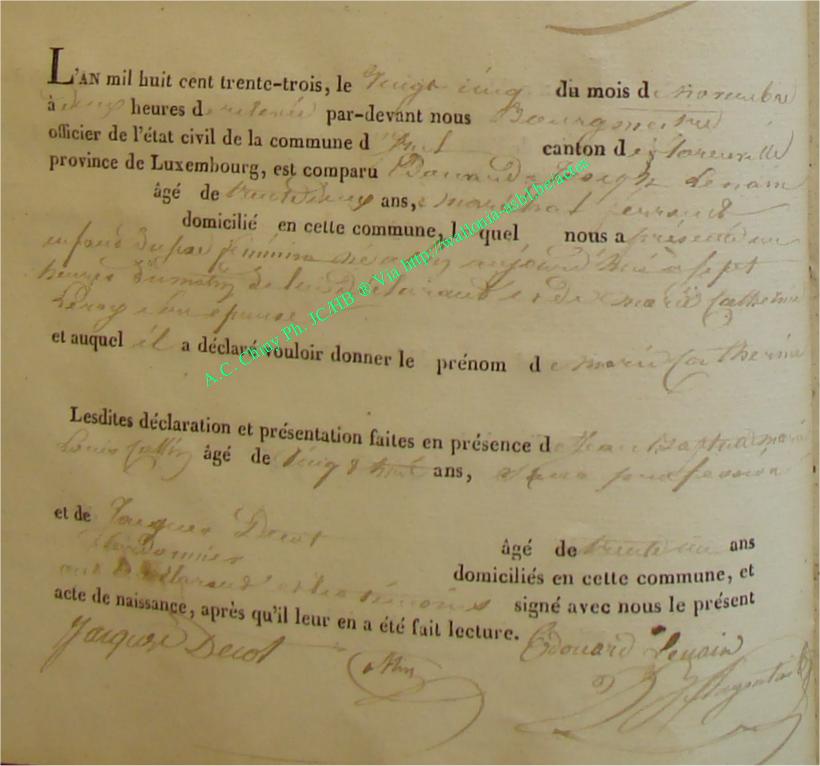 L'AN mil huit cent trente-trois, le Vingt cinq du mois de novembre
à deux heures de relevée par-devant nous Bourgmestre
officier de l'état civil de la commune d canton de florenville
province de Luxembourg, est comparu Edouard Joseph Lenain
âgé de trente deux ans, marechal ferrant
domicilié en cette commune, lequel nous a présenté un
enfant du sexe féminin né aujourd'hui a sept
heures du matin de lui déclarant et de marie Catherine
Leroy son epouse
et auquel il a déclaré vouloir donner le prénom de marie Catherine
Lesdites déclaration et présentation faites en présence de Jean Baptiste marie
Louis Collin âgé de Vingt huit ans, sans profession
et de Jacques Decot âgé de trente un ans
Cordonnier domiciliés en cette commune, et
ont déclarant et les témoins signé avec nous le présent
acte de naissance, après qu'il leur en a été fait lecture.
Jacques Decot Edouard Lenain
A.C. Chiny Ph. JC.HB ® Via http://wallonia-asbl.be/actes